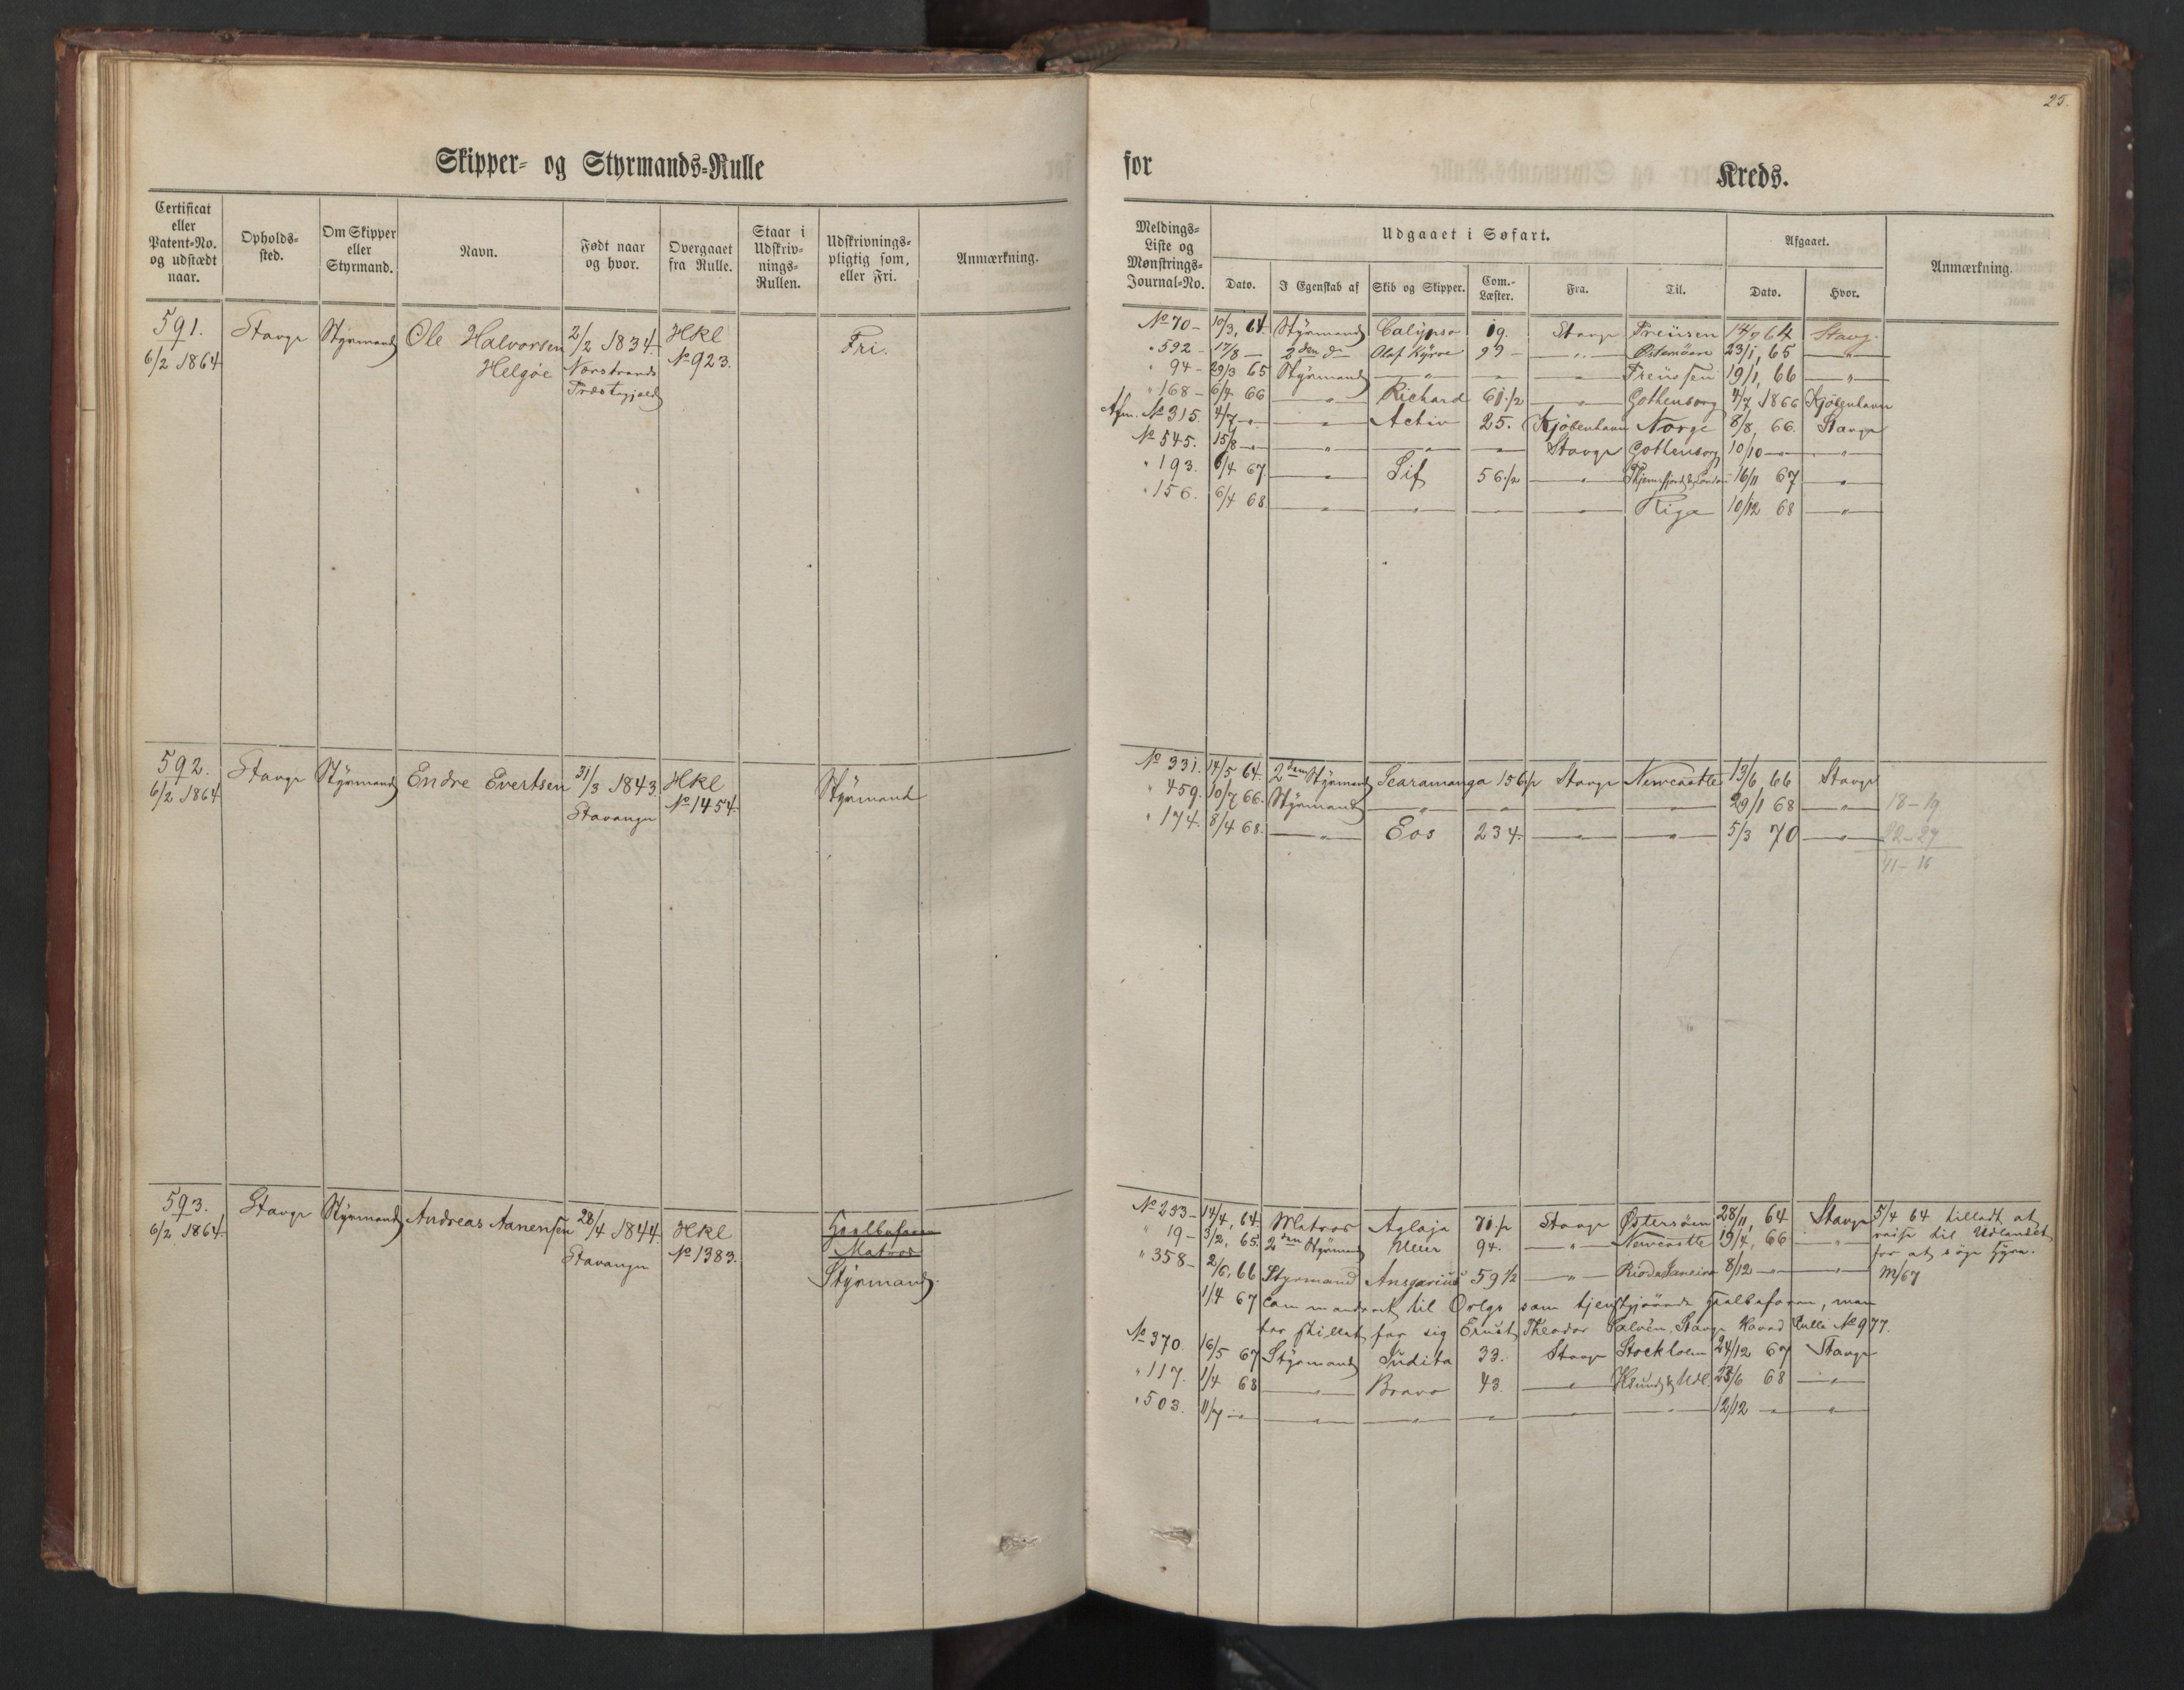 25.
Skipper- og Styrmands-Rulle for Kreds.
Certificat eller Patent-No. og udstædt naar.
Opholds-sted.
Om Skipper eller Styrmand.
Navn.
Født naar og hvor.
Overgaaet fra Rulle.
Staar i Udskriv-nings-Rullen.
Udskrivnings-pligtig som, eller Fri.
Anmærkning.
Meldings-Liste og Mønstrings-Journal-No.
Udgaaet i Søfart.
Dato. I Egenskab af Skib og Skipper. Com.-Læster. Fra. Til.
Afgaaet.
Dato. Hvor.
Anmærkning.
591. Stavgr Styrmand Ole Halvorsen 2/2 1834. Hkl Fri.
6/2 1864 Helgøe Nærstrands No 923.
Præstegjæld
No 70 – 10/3, 64. Styrmand Calÿpso 19. Stavgr Preüsen 64 Stavg.
" 592 – 17/8 — 2den do Olaf Kÿrre 99 — " — Østersöen 23/1, 65 — " —
" 94 – 29/3 65 Stÿrmand — " — — — " — Preüssen 19/1, 66 — " —
" 168 – 6/4 66 — " — Richard 61 1/2 — " — Gothenborg 4/7 1866 Kjöbenhavn
Afm. No 315. 4/7 – " – — " — Activ 25. Kjöbenhavn Norge 8/8, 66. Stavgr
No 545. 15/8 – " – — " — — " — — Stavgr Gothenborg 10/10 — " — — " —
" 193. 6/4 67 — " — Sif 56 1/2 — " — 16/11 67 — " —
" 156. 6/4 68 — " — — " — — — " — Riga 10/12 68 — " —
592. Stavgr Stÿrmand Endre Evertsen 31/3 1843. Hkl Stÿrmand
6/2 1864 Stavanger No 1454.
No 331. 14/5 64. 2den Stÿrmand Scaramanga 156 1/2 Stavgr Newcastle 13/6, 66 Stavgr
" 459. 10/7 66. Stÿrmand — " — — " — — " — — " — 29/1 68 — " — 18–19
" 174. 8/4 68. — " — Eos 234. — " — — " — 5/3 70 — " — 22–27
41–16
593. Stavgr Stÿrmand Andreas Aanensen 28/4 1844. Hkl Halvbefaren
6/2 1864. Stavanger No 1383. Matros
Stÿrmand.
No 253 – 14/4, 64. Matros Aglaja 71 1/2 Stavgr Østersöen 28/11, 64 Stavgr 5/4 64 tilladt at
" 19 – 3/2, 65. 2den Stÿrmand 94. — " — Newcastle 19/4, 66 — " — reise til Udlandet
for at söge Hÿre.
" 358 – 2/6, 66 Styrmand Ansgarius 59 1/2 — " — Rio de Janeiro 8/12 — " — — " — M/67
1/4 67 Commanderet til Orlogs som tjenstgjörende Halvbefaren, men
har stillet for sig Ernst Theodor Salvén, Stavgr Hoved Rulle No 977.
No 370. 16/5 67 Stÿrmand Judita 33. Stavgr Stockholm 24/12 67 Stavgr
" 117. 1/4 68 — " — Bravo 43. — " — 23/6 68 — " —
" 503. 11/7 – " – — " — — " — — " — — " — — " — 12/12 — " — — " —